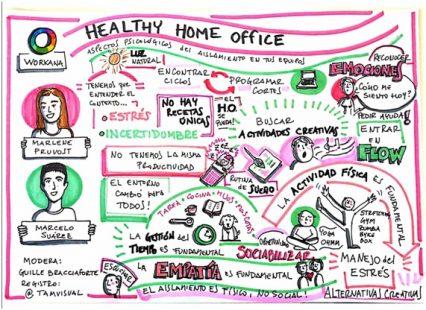 HEALTHY HOME OFFICE
ASPECTOS PSICOLÓGICOS del AISLAMIENTO EN TUS EQUIPOS
WORKANA
LUZ
NATURAL
ENCONTRAR
CICLOS
PROGRAMAR
CORTES
RECONOCER
EMOCIONES
¿CÓMO ME
SIENTO HOY?
PEDIR AYUDA!
TENEMOS QUE
ENTENDER EL
CONTEXTO...
ESTRÉS
INCERTIDUMBRE
NO HAY
RECETAS
ÚNICAS
EL
H.O.
SE
BUSCAR
ACTIVIDADES CREATIVAS
ENTRAR
EN
FLOW
MARLENE
PRUVOST
NO TENEMOS LA MISMA
PRODUCTIVIDAD
RUTINA
de
SUEÑO
EL ENTORNO
CAMBIÓ PARA
TODOS!
TAREA + COCINA + HIJOS
LA GESTIÓN del
TIEMPO ES FUNDAMENTAL
SOCIABILIZAR
LA ACTIVIDAD FÍSICA ES
FUNDAMENTAL
YOGA
OHMM..
GYM
ZUMBA
BYKE
BOX
MARCELO
SUÁREZ
MANEJO del
ESTRÉS
MODERA:
GUILLE BRACCIAFORTE
REGISTRO:
@ TAMVISUAL
ESCUCHAR
LA EMPATÍA ES FUNDAMENTAL
EL AISLAMIENTO ES FÍSICO, NO SOCIAL!
ALTERNATIVAS CREATIVAS